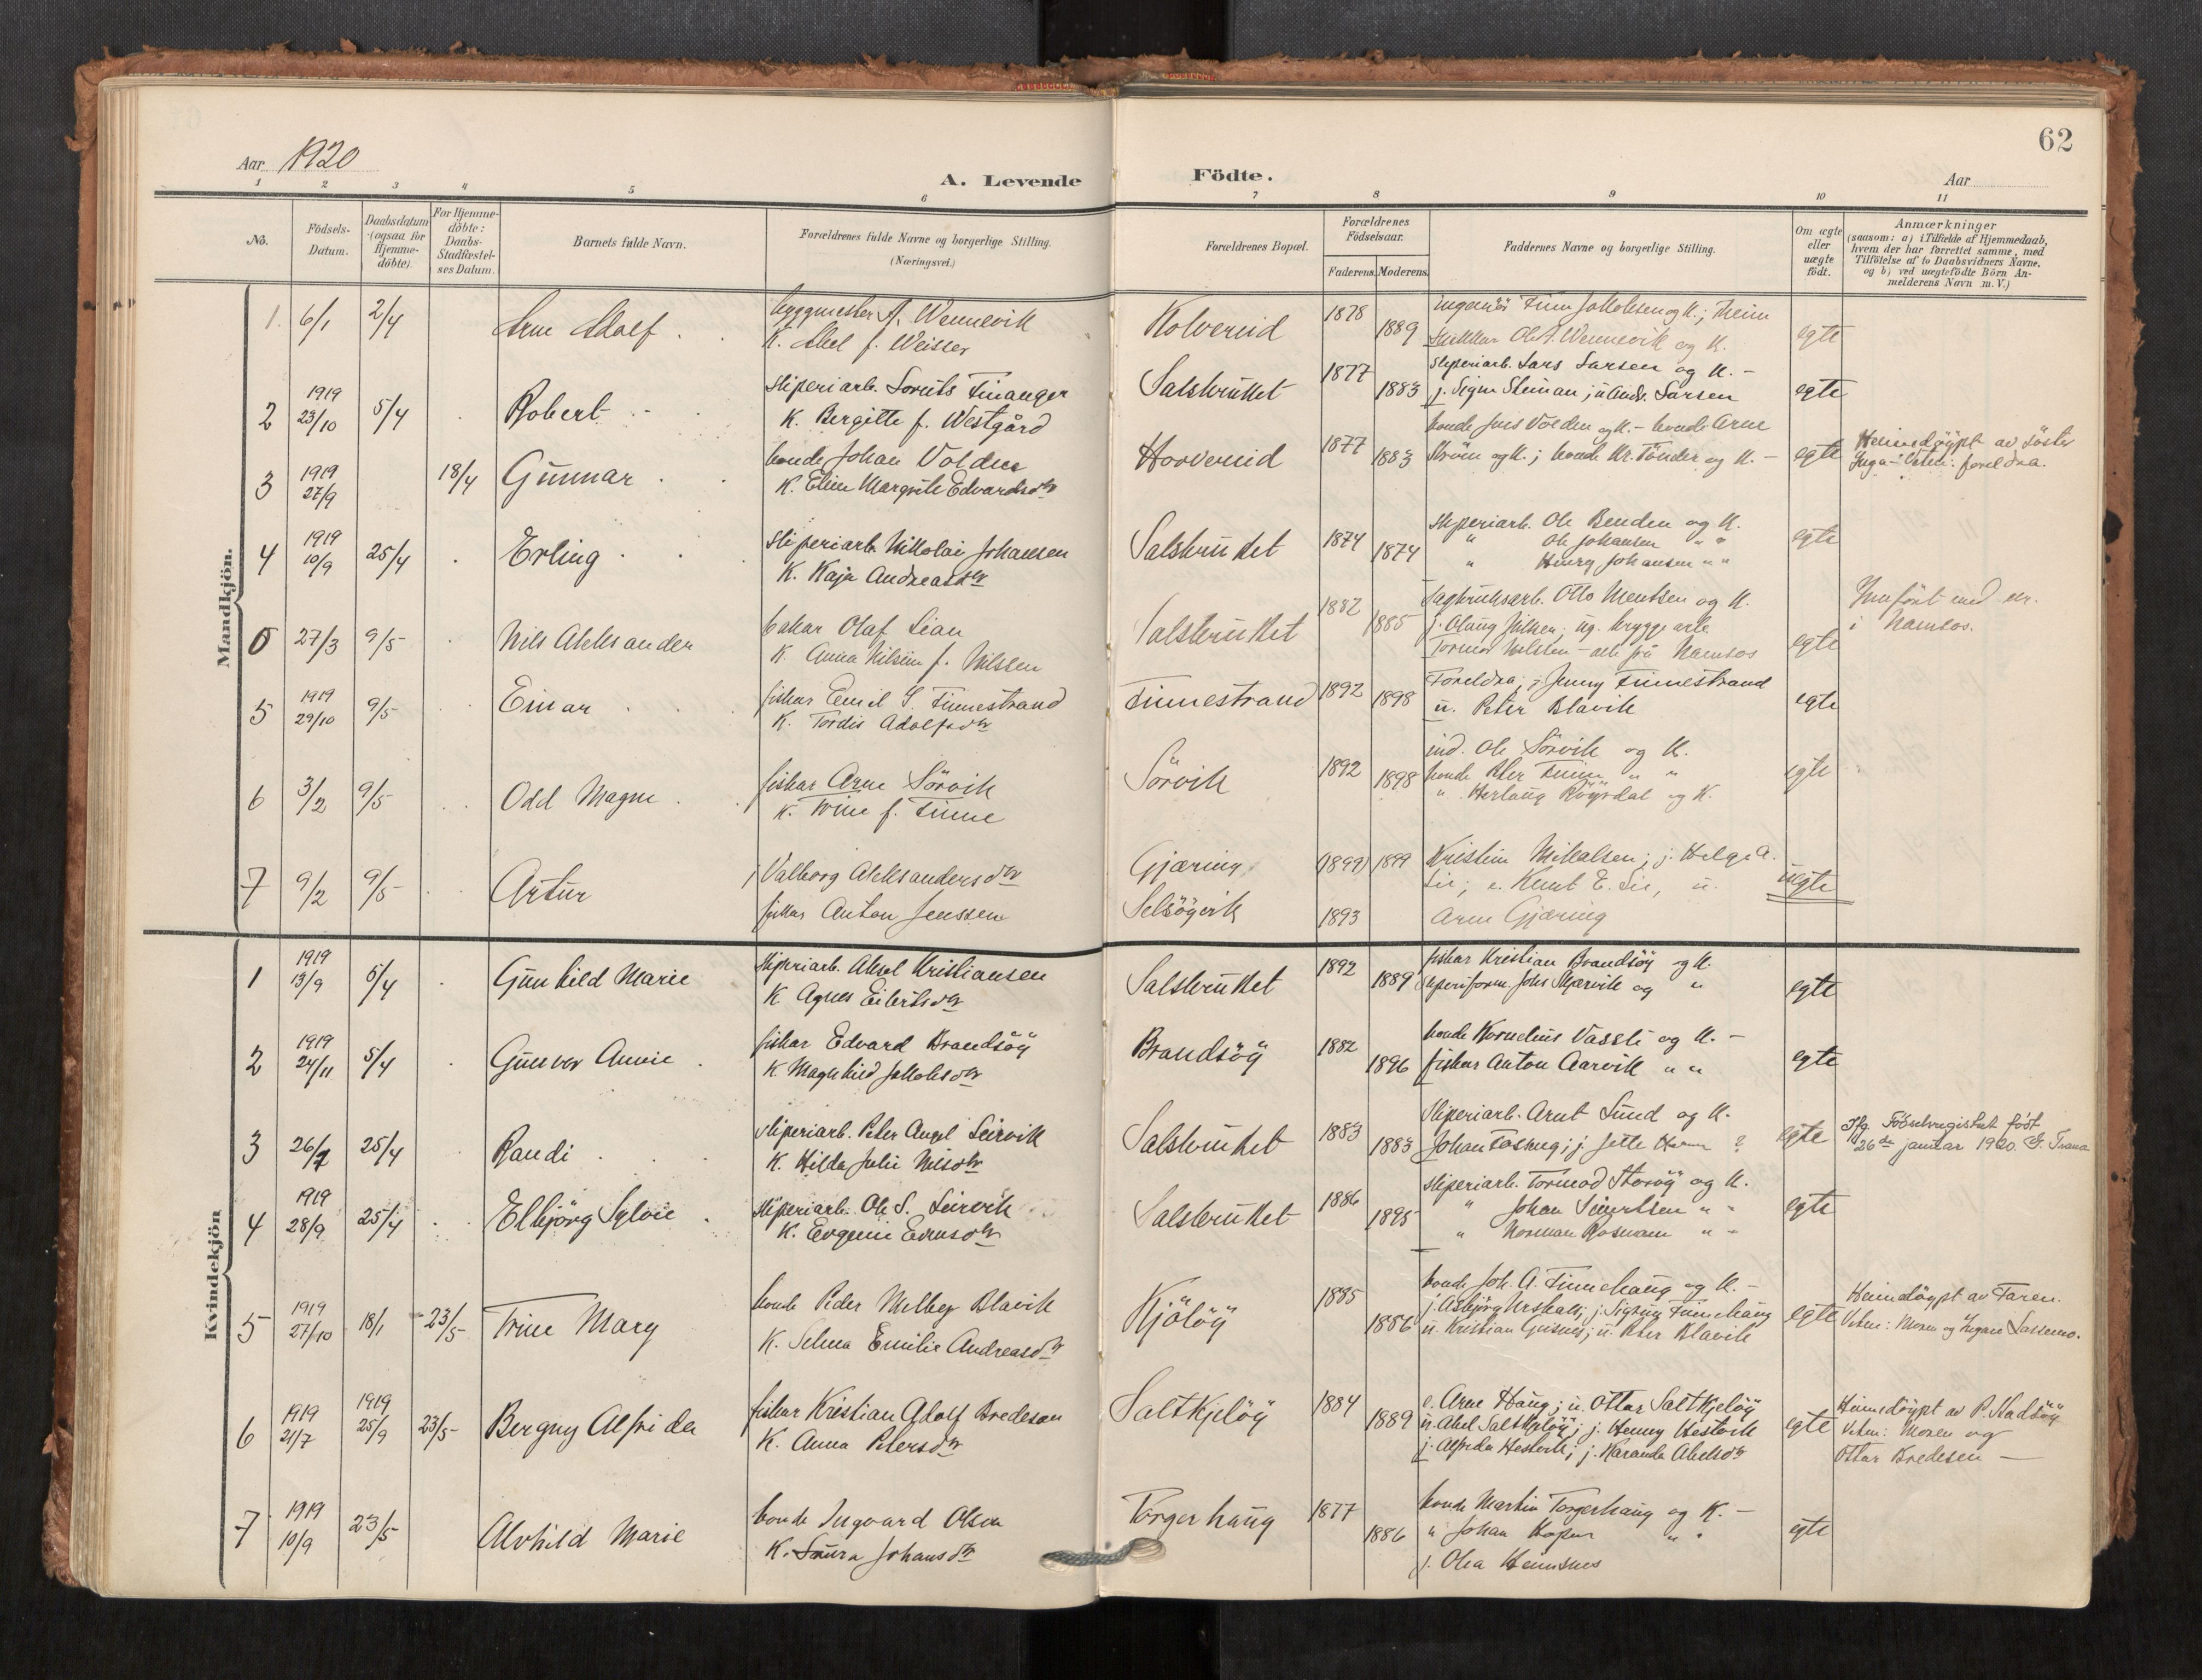 62
Aar 1920
A. Levende Födte.
Aar
1 2 3 4 5 6 7 8 9 10 11
No.
Födsels-Datum.
Daabsdatum (ogsaa for Hjemme-döbte).
For Hjemme-döbte: Daabs-Stadfæstel-ses Datum.
Barnets fulde Navn.
Forældrenes fulde Navne og borgerlige Stilling.
(Næringsvei.)
Forældrenes Bopæl.
Forældrenes Födselsaar.
Faderens. Moderens.
Faddernes Navne og borgerlige Stilling.
Om ægte eller uægte födt.
Anmærkninger
(saasom: a) i Tilfælde af Hjemmedaab,
hvem der har forrettet samme, med
Tilföielse af to Daabsvidners Navne,
og b) ved uægtefödte Börn An-
melderens Navn m.V.)
Mandkjön.
1. 6/1 2/4 Arne Adolf
byggmester A. Wennevik
K. Abel f. Weisser
Kolvereid 1878 1889
ingeniör Finn Jakobsen og K.;
Ole A. Wennevik og K.
egte
2 1919 23/10 5/4 Robert
sliperiarb. Lorents Finanger
K. Bergitte f. Westgård
Salsbruket 1877 1883
sliperiarb. Lars Larsen og K. -
j. Signe Steinan; u. Andr. Larsen
egte
3 1919 27/9 18/4 Gunnar
bonde Johan Volden
K. Eline Margrete Edvardsdtr
Hovereid 1877 1883
bonde Jens Volden og K. - bonde Arne
Ström og K.; bonde Kr. Tönder og K. -
egte
Heimedöypt av söster
Inga - Vitni: foreldra.
4 1919 10/9 25/4 Erling
sliperiarb. Nikolai Johansen
K. Kaja Andreasdtr
Salsbruket 1874 1874
sliperiarb. Ole Benden og K.
" Ole Johansen " "
" Henry Johansen " "
egte
0 27/3 9/5 Nils Aleksander
bakar Olaf Lian
K. Anna Nilsine f. Nilsen
Salsbruket 1882 1885
Sagbruksarb. Otto Mentsen og K.
j. Olaug Nilsen; ug. bryggearb.
Tormod Nilsen - alle frå Namsos
egte
Innfört med nr.
i Namsos.
5 1919 29/10 9/5 Einar
fiskar Emil S. Finnestrand
K. Tordis Adolfsdtr
Finnestrand 1892 1898
Foreldra; j. Jenny Finnestrand
u. Peter Blavik
egte
6 3/2 9/5 Odd Magne
fiskar Arne Sörvik
K. Trine f. Finne
Sörvik 1892 1898
ind. Ole Sörvik og K.
bonde Peter Finne " "
" Herlaug Röyrdal og K.
egte
7 9/2 9/5 Artur
j. Valborg Aleksandersdtr
fiskar Anton Jenssen
Gjæring
Selsöyvik
(1899) 1899
1893
Kristine Mikalsen; j. Helga A.
Lie; e. Knut E. Lie, u.
Arne Gjæring
uegte
Kvindekjön
1 1919 13/9 5/4 Gunhild Marie
sliperiarb. Aksel Kristiansen
K. Agnes Eilertsdtr
Salsbruket 1892 1889
fiskar Kristian Brandsöy og K.
sliperiform. Johs Skjærvik og "
egte
2 1919 24/11 5/4 Gunvor Annie
fiskar Edvard Brandsöy
K. Magnhild Jakobsdtr
Brandsöy 1882 1896
bonde Kornelius Vassli og K. -
fiskar Anton Aarvik " "
egte
3 26/1 25/4 Randi
sliperiarb. Peter Angel Leirvik
K. Hilda Julie Nilsdtr
Salsbruket 1883 1883
sliperiarb. Arnt Lund og K.
Johan Foshug; j. Jette ?
egte
Ifg. Födselsregistret föst
26de januar 1920. S. Trana
4 1919 28/9 25/4 Elbjörg Sylvie
sliperiarb. Ole S. Leirvik
K. Evgenie Evensdtr
Salsbruket 1886 1895
sliperiarb. Tormod Storöy og K.
" Johan Sivertsen " "
" Norman Rosmann " "
egte
5 1919 27/10 18/1 23/5 Trine Mary
bonde Peder Melbey Blavik
K. Selma Emilie Andreasdtr
Kjölöy 1885 1886
bonde Joh. A. Finnehaug og K. -
j. Asbjörg; j. Sigrun Finnehaug
u. Kristian Grisnes; u. Peter Blavik
egte
Heimedöypt av Faren.
Vitni: Moren og
6 1919 21/7 1919 25/9 23/5 Bergny Alfrida
fiskar Kristian Adolf Bredesen
K. Anna Petersdtr
Saltkjelöy 1884 1889
e. Arne Haug; u. Ottar Saltkjelöy
u. Aksel Saltkjelöy; j. Henny Hestvik
j. Alfrida Hestvik; j. Karanda Akselsdtr
egte
Heimedöypt av P. Kladsöy
Vitni: Moren og
Ottar Bredesen -
7 1919 10/9 23/5 Alvhild Marie
bonde Ingvard Olsen
K. Laura Johansdtr
Torgerhaug 1877 1886
bonde Martin Torgerhaug og K. -
" Johan Hopen " "
j. Olea Heimsnes
egte